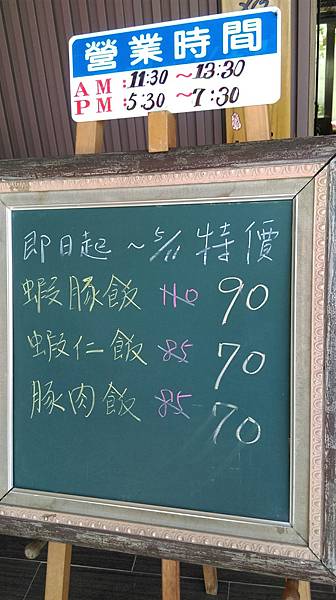 營業時間
AM:11:30～13:30
PM:5:30～7:30
即日起～5/11特價
蝦豚飯 110 90
蝦仁飯 85 70
豚肉飯 85 70